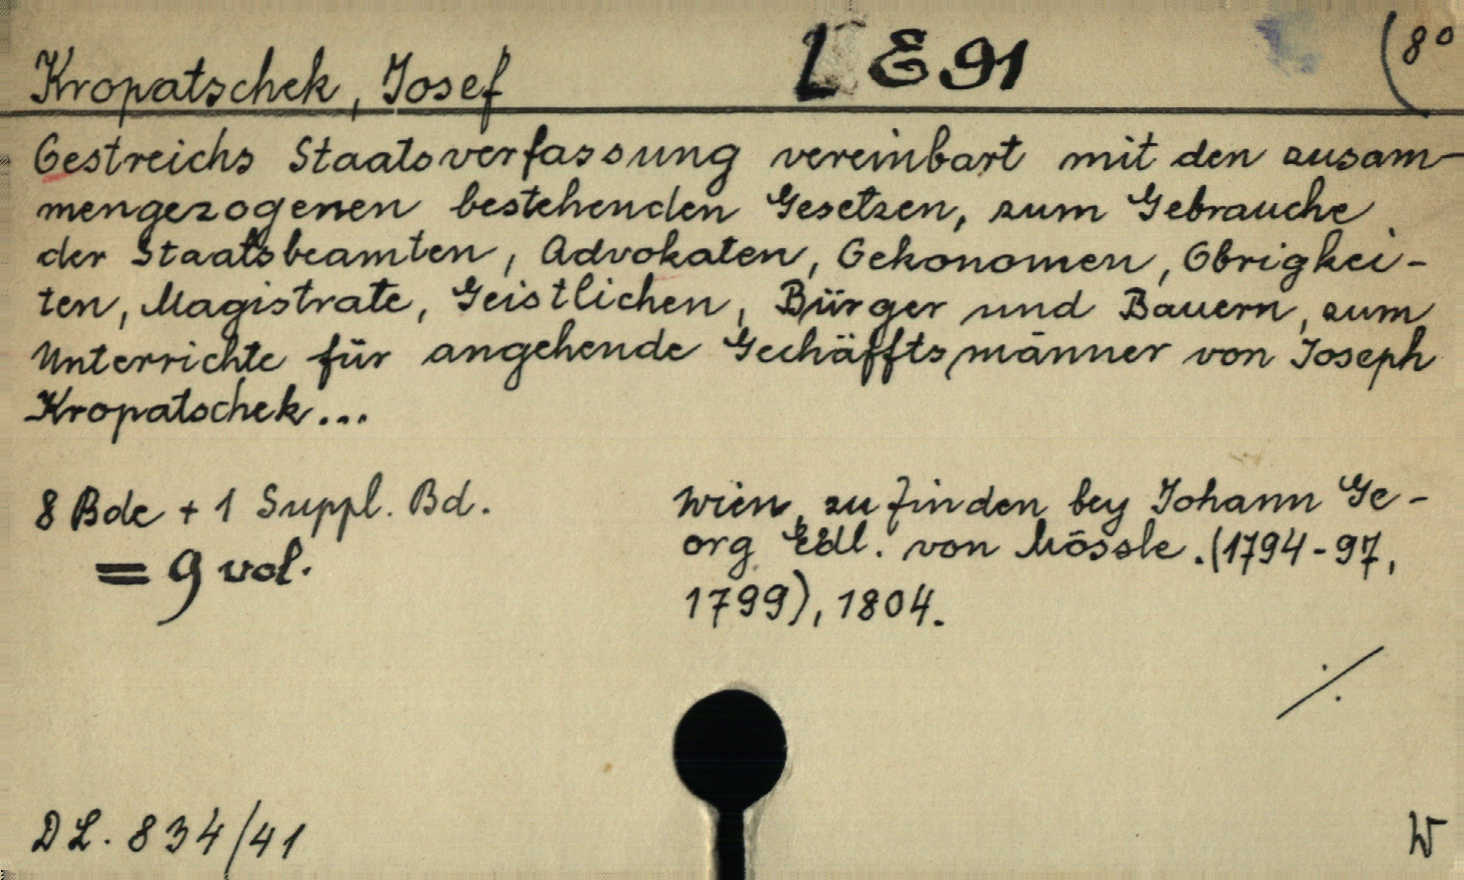 Kropatschek, Josef L E 91 (8°
Oestreichs Staatsverfassung vereinbart mit den zusam-
mengezogenen bestehenden Gesetzen, zum Gebrauche
der Staatsbeamten, Advokaten, Oekonomen, Obrigkei-
ten, Magistrate, Geistlichen, Bürger und Bauern, zum
Unterrichte für angehende Gechäfftsmänner von Joseph
Kropatschek...
8 Bde + 1 Suppl. Bd.
= 9 vol.
Wien, zu finden bey Johann Ge-
org Edl. von Mössle. (1794-97,
1799), 1804.
./.
DL. 834/41
W